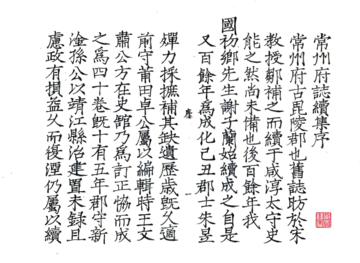 常州府志續集序
常州府古毘陵郡也舊誌昉於宋
教授鄒補之而續于咸淳太守史
能之然尚未備也後百餘年我
國初鄉先生謝子蘭始續成之自是
又百餘年爲成化己丑郡士朱昱
殫力採摭補其缺遺歷歲旣久適
前守莆田卓公屬以編輯時王文
肅公方在史館乃爲訂正協而成
之爲四十卷旣十有五年郡守新
淦孫公以靖江縣治建置未錄且
慮政有損益久而復湮仍屬以續